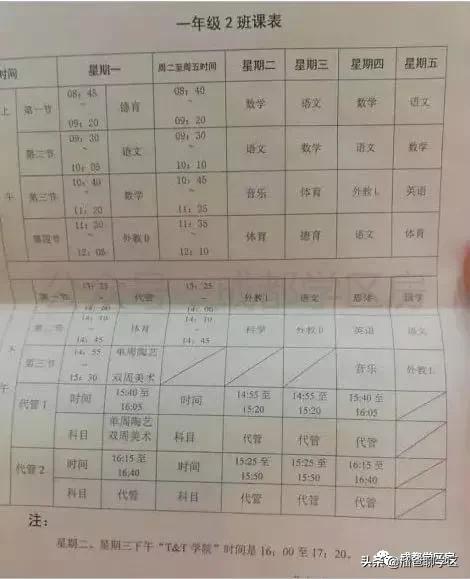 一年级2班课表
时间 星期一 周二至周五时间 星期二 星期三 星期四 星期五
上午
第一节 08:45~09:20 德育 08:40~09:20 数学 语文 数学 语文
第二节 09:30~10:05 语文 09:30~10:10 语文 数学 语文 数学
第三节 10:40~11:20 数学 10:45~11:25 音乐 体育 外教L 英语
第四节 11:30~12:05 外教D 11:35~12:10 体育 德育 语文 体育
下午
第一节 代管 13:25~14:00 外教L 语文 国学
第二节 14:10~14:45 体育 14:10~14:45 科学 外教D 英语 语文
第三节 14:55~15:30 单周陶艺 双周美术 音乐 外教L
代管1 时间 15:40至16:05 时间 14:55至15:20 14:55至15:20 15:40至16:05
科目 单周陶艺双周美术 科目 代管 代管 代管
代管2 时间 16:15至16:40 时间 15:25至15:50 15:25至15:50 16:15至16:40
科目 代管 科目 代管 代管 代管
注:
星期二、星期三下午“T&T学院”时间是16:00至17:20。
成都学区房